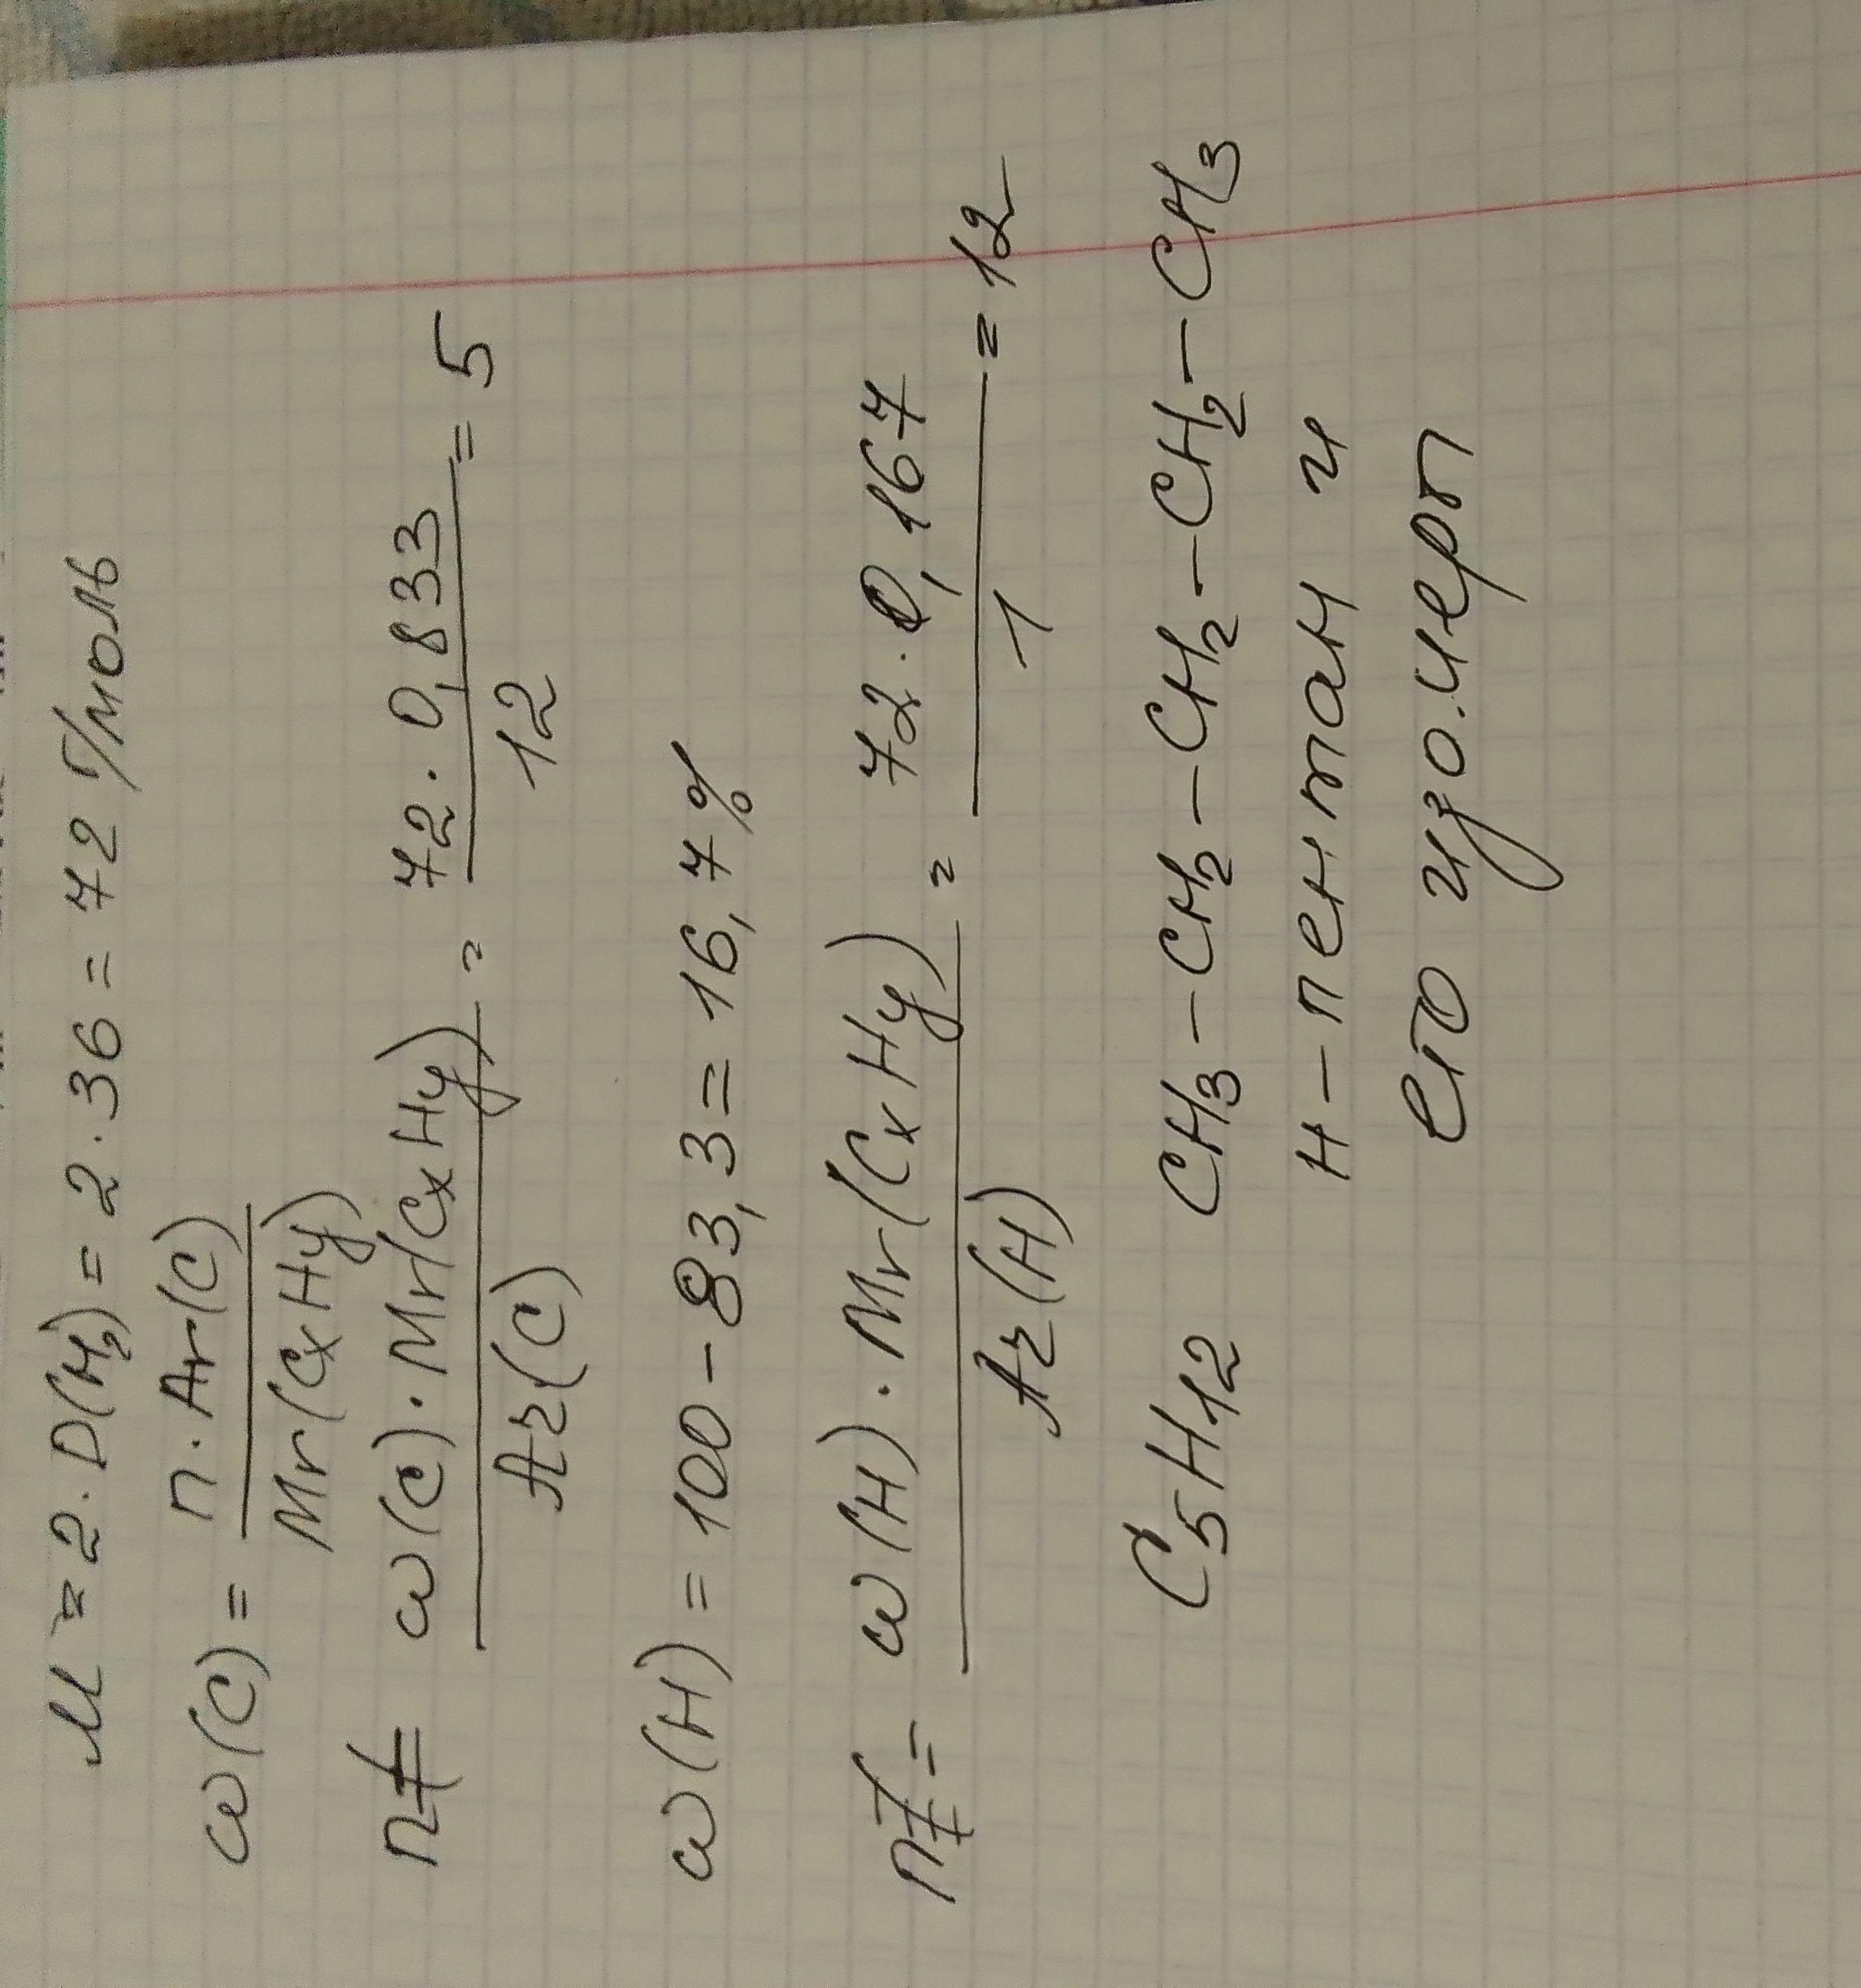 M = 2 · D(H₂) = 2 · 36 = 72 г/моль
ω(C) = n · Ar(C) / Mr(CxHy)
n = ω(C) · Mr(CxHy) / Ar(C) = 72 · 0,833 / 12 = 5
ω(H) = 100 - 83,3 = 16,7%
n = ω(H) · Mr(CxHy) / Ar(H) = 72 · 0,167 / 1 = 12
C₅H₁₂ CH₃ - CH₂ - CH₂ - CH₂ - CH₃
н-пентан и
его изомеры